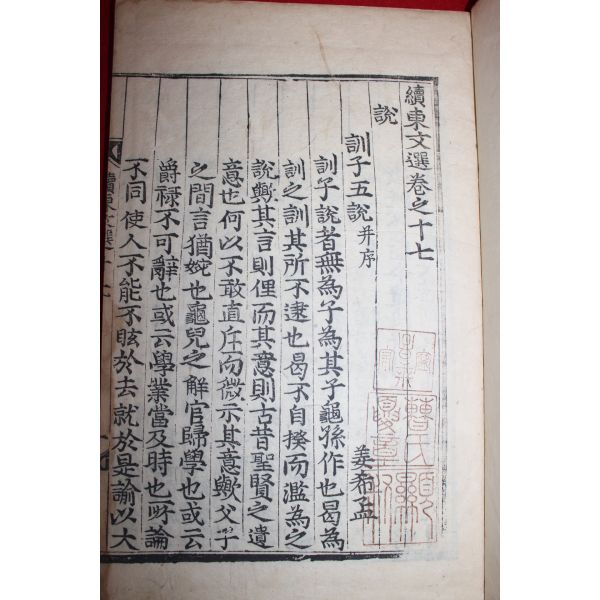 續東文選卷之十七
說
訓子五說 并序
姜希孟
訓子說者無為子為其子龜孫作也曷為
訓之訓其所不逮也曷不自揆而濫為之
說歟其言則俚而其意則古昔聖賢之遺
意也何以不敢直斥而微示其意歟父子
之間言猶婉也龜兒之解官歸學也或云
爵祿不可辭也或云學業當及時也所論
不同使人不能不眩於去就於是諭以大
續東文選十七
曹氏
章